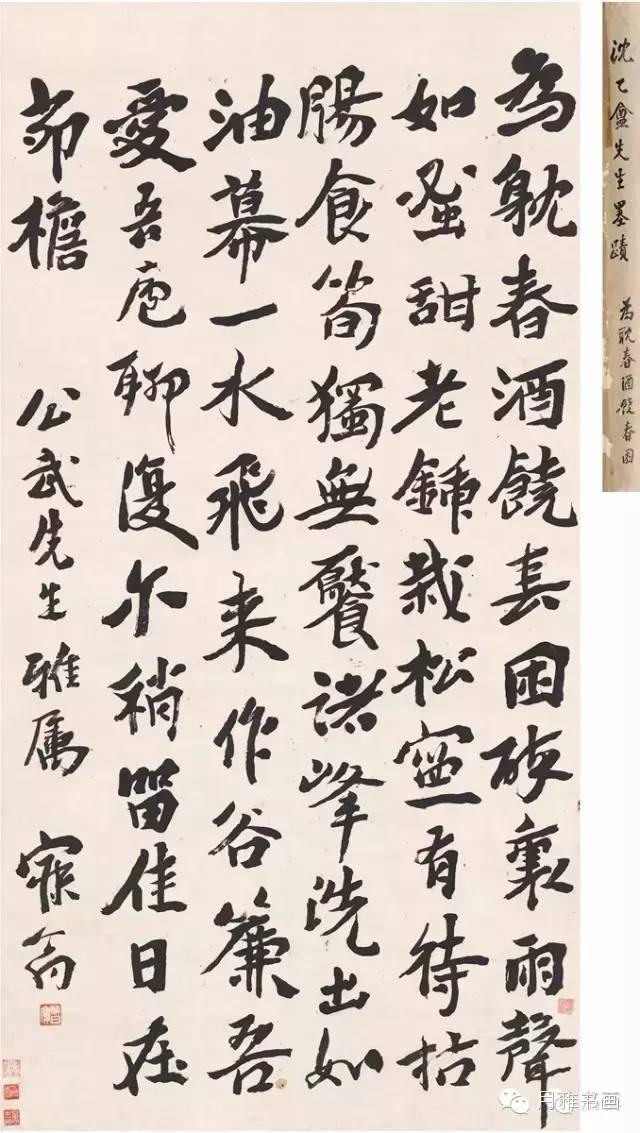 為躭春酒饒春困被裏雨聲
如蜜甜老鍤栽松寧有待枯
腸食筍獨無饜諸峰洗出如
油幕一水飛来作谷簾吾
愛吾廬聊復尓稍留佳日在
茆檐
公武先生雅属 寐翁
沈乙盦先生墨蹟 為耽春酒饒春困
月雅书画